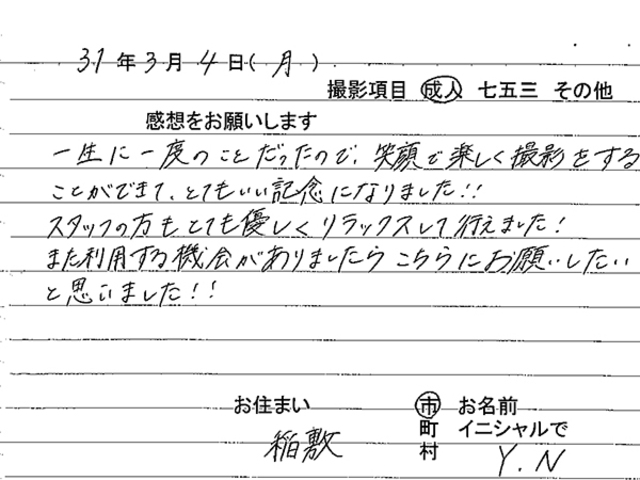 31年3月4日(月)
撮影項目 成人 七五三 その他
感想をお願いします
一生に一度のことだったので、笑顔で楽しく撮影をする
ことができて、とてもいい記念になりました!!
スタッフの方もとても優しくリラックスして行えました!
また利用する機会がありましたらこちらにお願いしたい
と思いました!!
お住まい 市 お名前
町 イニシャルで
稲敷 村 Y.N